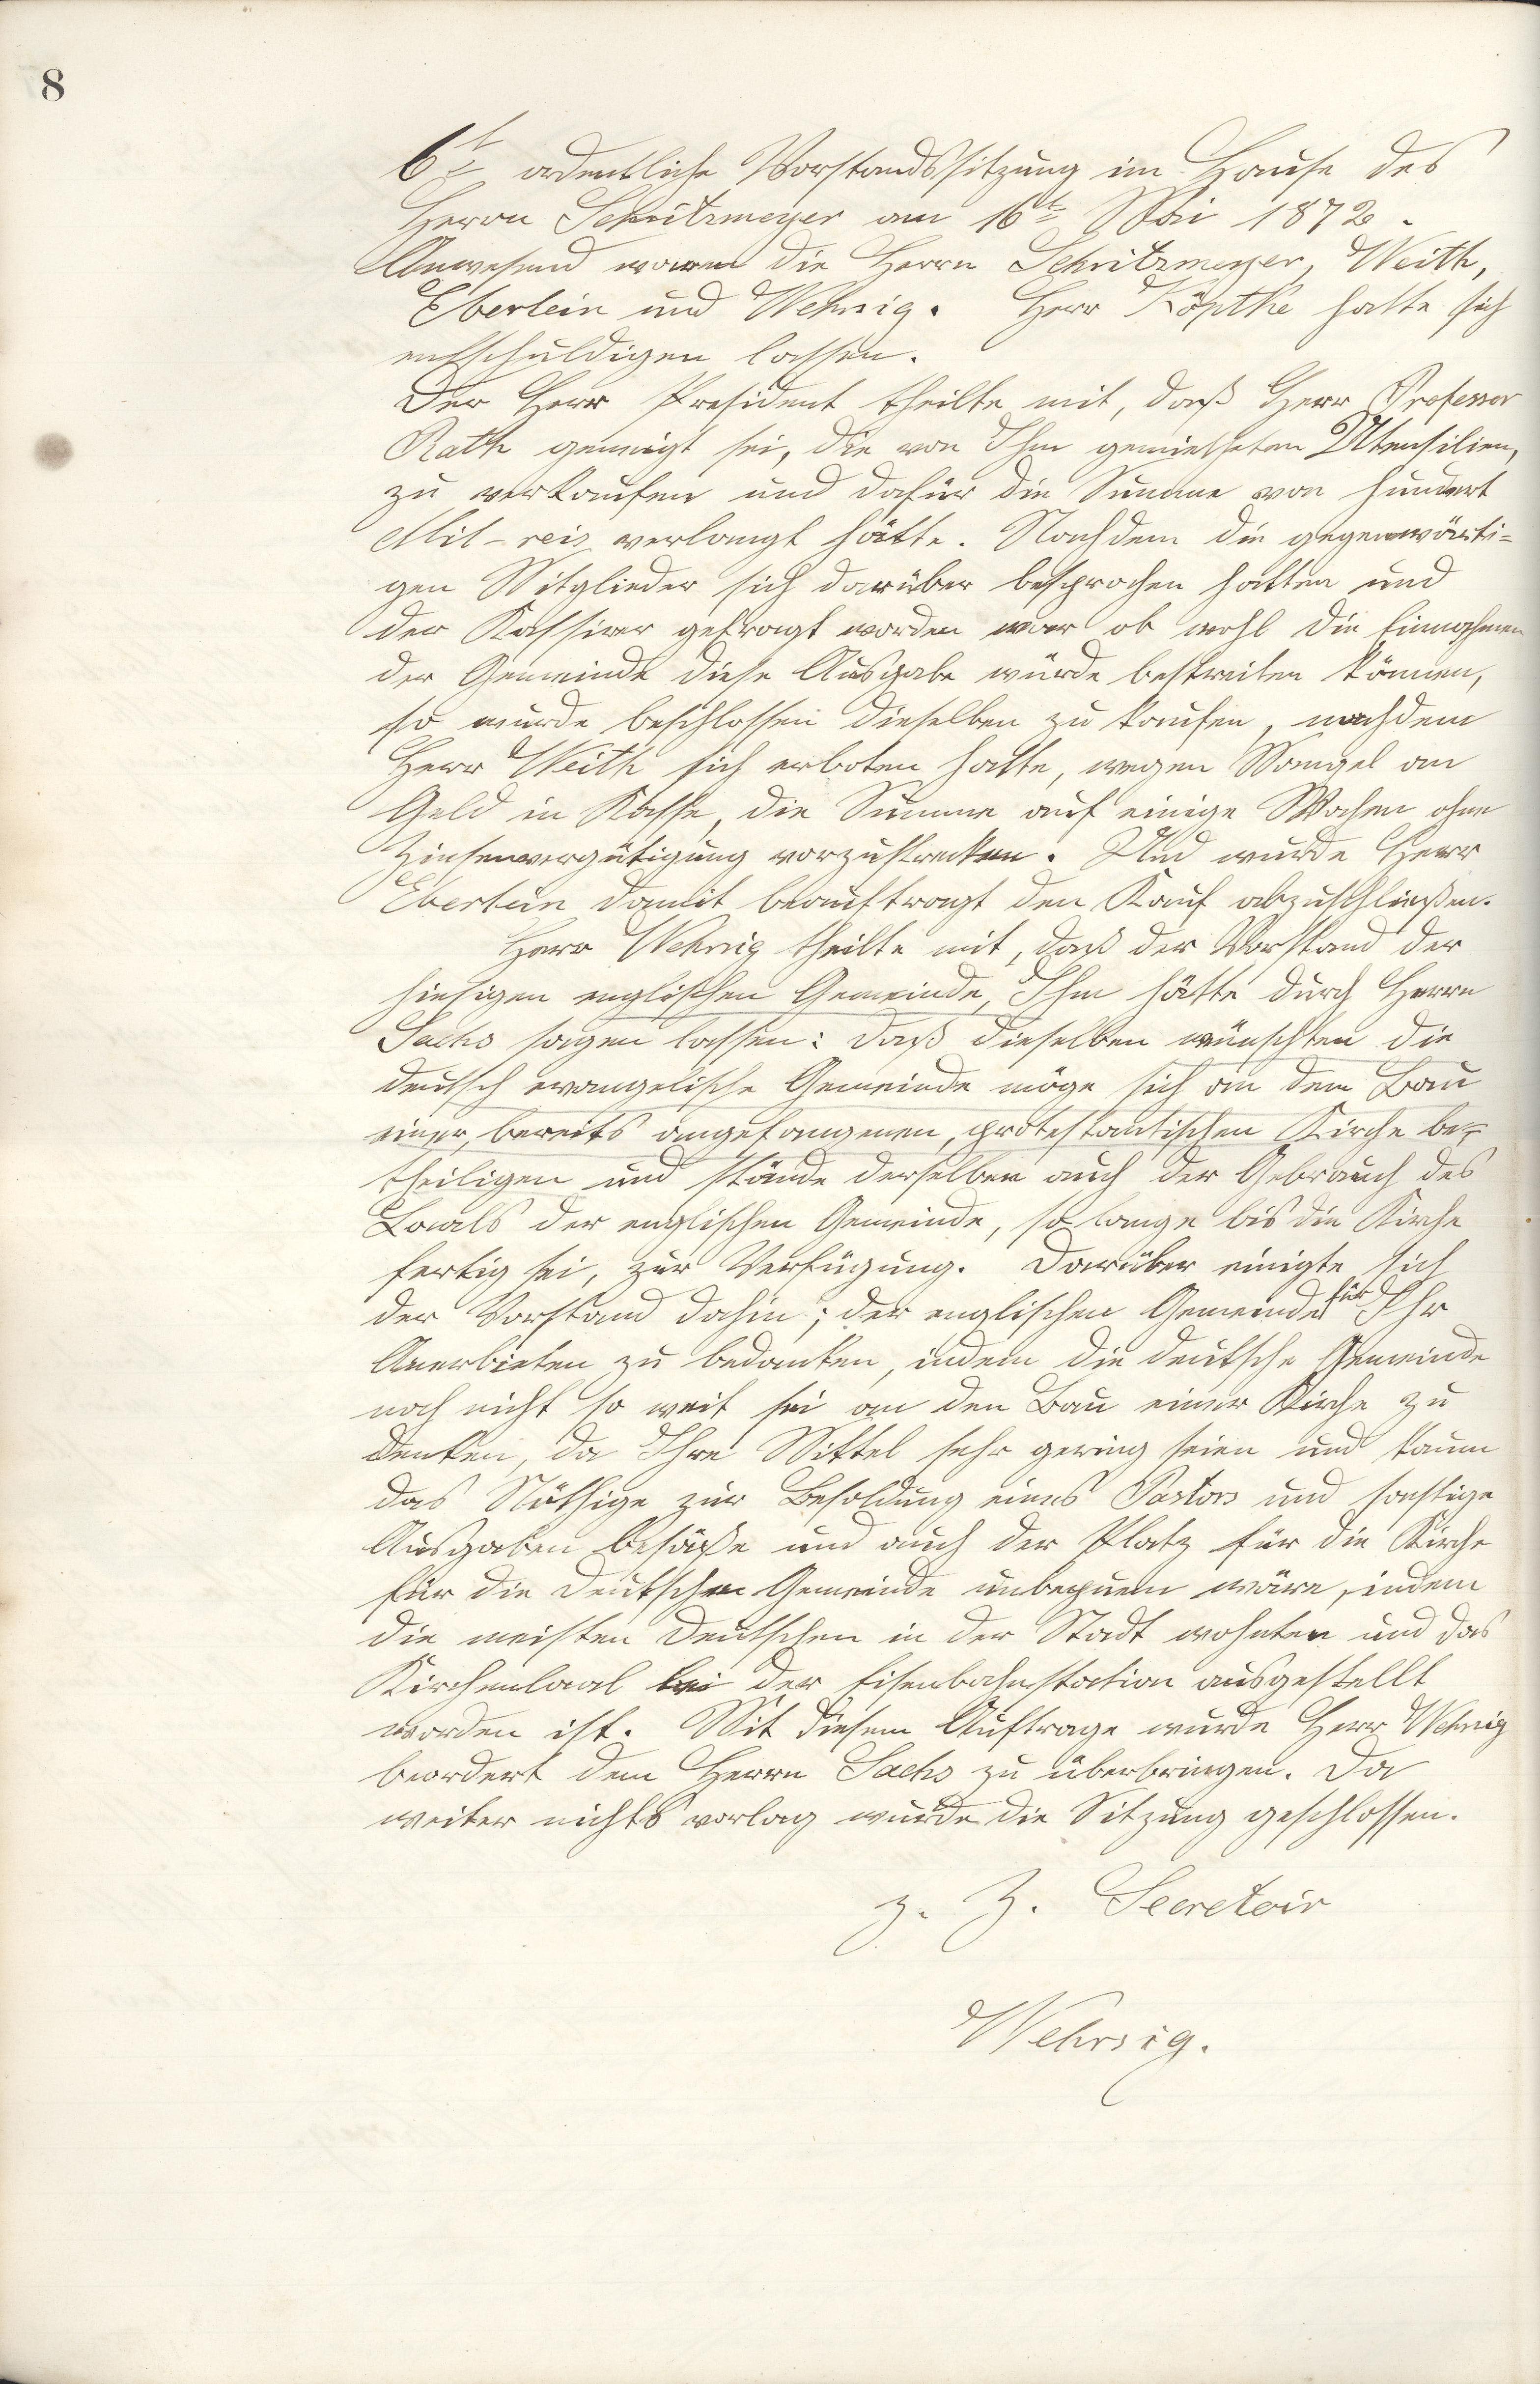 8
6te ordentliche Vorstandssitzung im Hause des
Herrn Schritzmeyer am 16te Mai 1872.
Anwesend waren die Herrn Schritzmeyer, Weith,
Eberlein und Wehrsig. Herr Köpthe hatte sich
entschuldigen lassen.
Der Herr President theilte mit, daß Herr Professor
Rath geneigt sei, die von Ihm gemietheten Utensilien,
zu verkaufen und dafür die Summe von hundert
Mil-reis verlangt hätte. Nachdem die gegenwärti-
gen Mitglieder sich darüber besprochen hatten und
der Kassirer gefragt worden war ob wohl die Einnahmen
der Gemeinde diese Ausgabe würde bestreiten können,
so wurde beschlossen dieselben zu kaufen, nachdem
Herr Weith sich erboten hatte, wegen Mangel an
Geld in Kasse, die Summe auf einige Wochen ohne
Zinsenvergütigung vorzustrecken. Und wurde Herr
Eberlein damit beauftragt den Kauf abzuschließen.
Herr Wehrsig theilte mit, daß der Vorstand der
hiesigen englischen Gemeinde, Ihm hätte durch Herrn
Sachs sagen lassen: daß dieselben wünschten die
deutsch evangelische Gemeinde möge sich an dem Bau
einer, bereits angefangenen, protestantischen Kirche be-
theiligen und stände derselben auch der Gebrauch des
Locals der englischen Gemeinde, so lange bis die Kirche
fertig sei, zur Verfügung. Darüber einigte sich
der Vorstand dahin; der englischen Gemeinde für Ihr
Anerbieten zu bedanken, indem die deutsche Gemeinde
noch nicht so weit sei an den Bau einer Kirche zu
denken, da Ihre Mittel sehr gering seien und kaum
das Nöthige zur Besoldung eines Pastors und sonstige
Ausgaben besäße und auch der Platz für die Kirche
für die deutschen Gemeinde unbequem wäre, indem
die meisten Deutschen in der Stadt wohnten und das
Kirchenlocal bei der Eisenbahnstation ausgestellt
worden ist. Mit diesem Auftrage wurde Herr Wehrsig
beordert dem Herrn Sachs zu überbringen. Da
weiter nichts vorlag wurde die Sitzung geschlossen.
z. Z. Secretair
Wehrsig.